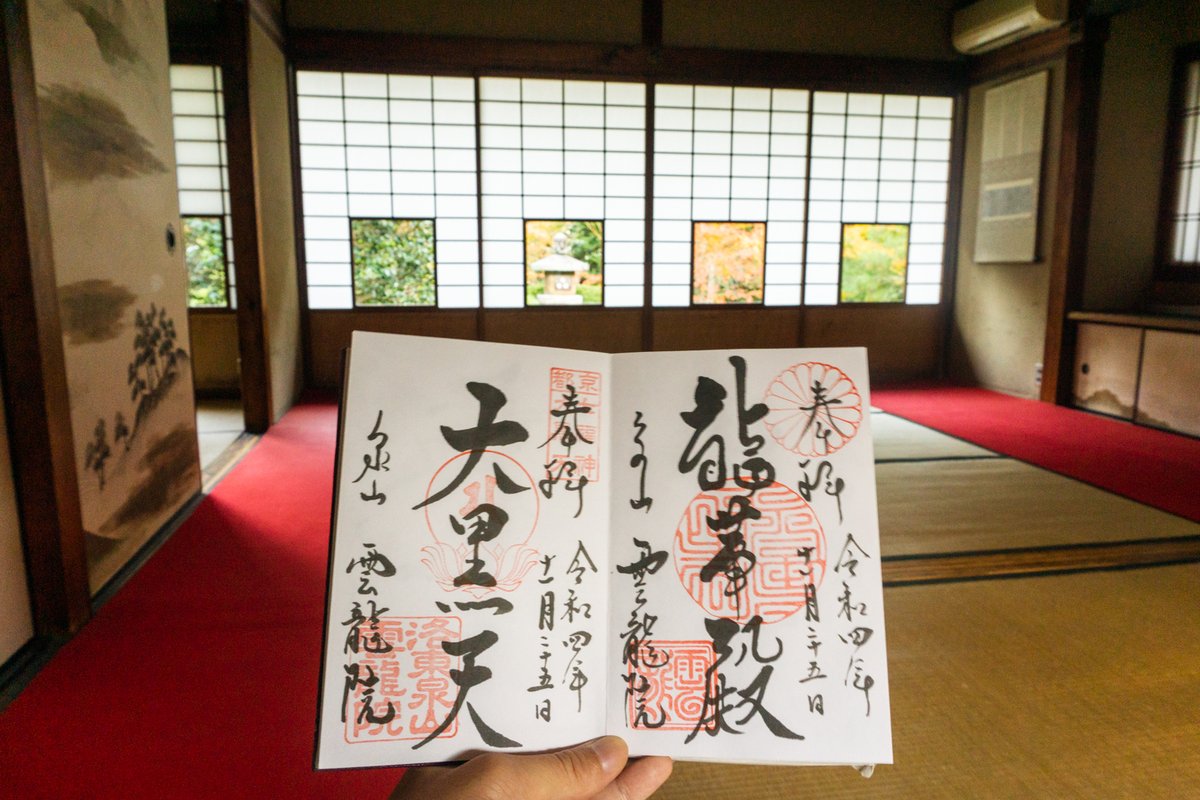 奉拝
令和四年
十一月二十五日
龍華殿
泉山
雲龍院
奉拝
令和四年
十一月二十五日
大黒天
泉山
雲龍院
洛東泉山
雲龍院